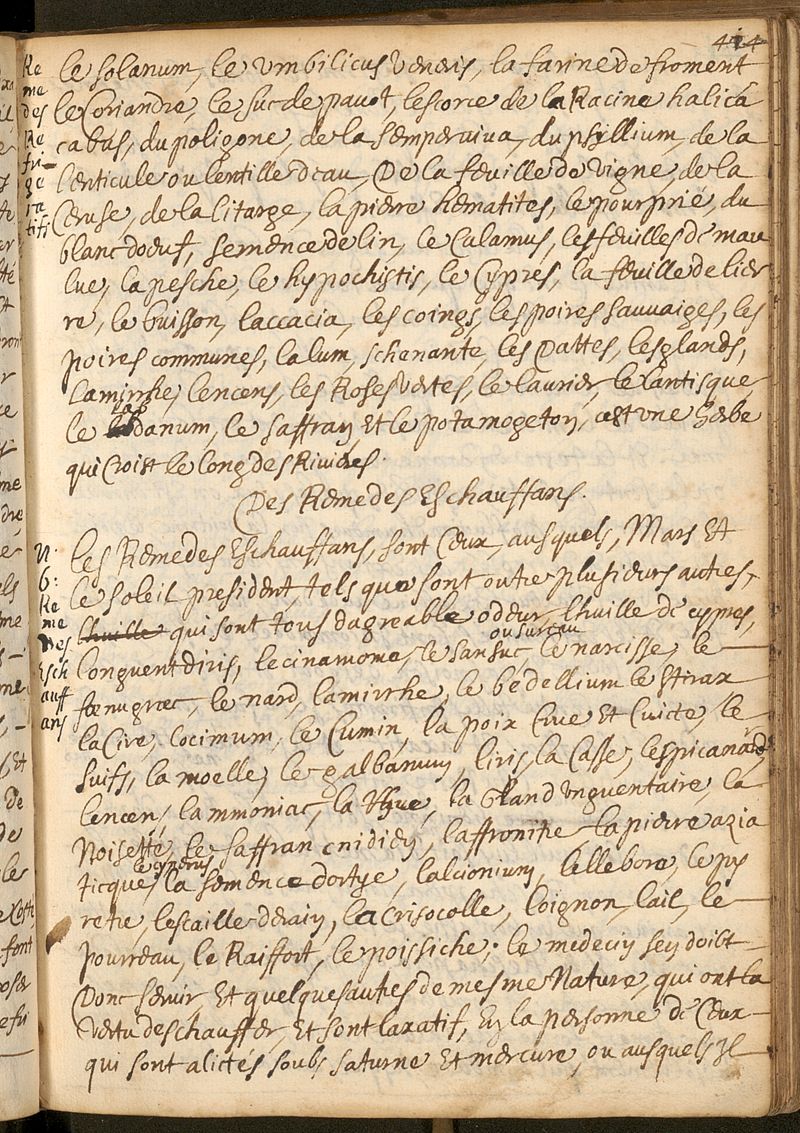 414
Re
me
des
Re
fri-
ge
ra
tifs
le solanum, le vmbilicus veneris, la farine de froment
le Coriandre, le suc de pauot, lescorce de la Racine halica
cabus, du poligone, de la semperviua, du psyllium, de la
lenticule ou lentille deau, De la feuille de vigne, de la
Ceruse, de la litarge, la pierre hematites, le pourprié, du
blanc doeuf, semence de lin, le Calamus, les feuilles de mau
lue, la pesche, le hypochistis, le Cypres, la feuille de lier
re, le buisson, laccacia, les coings, les poires sauuaiges, les
poires communes, lalum, schenante, les Dattes, les glands,
la mirrhe, lencens, les Roses vertes, le laurier, le lantisque
le ladanum, le saffran, Et le potamogeton, cest vne herbe
qui Croist le long des Riuieres.
Des Remedes Eschauffans.
N.
6:
Re
me
des
Esch
auff
ans
les Remedes Eschauffans, sont Ceux, ausquels, Mars Et
le soleil president, tels que sont outre plusieurs autres,
lhuille qui sont tous dagreable odeur, lhuille de cypres,
longuent diris, le cinamome, le sansuc, ou sureau le narcisse, le
foenugrec, le nard, la mirrhe, le bedellium le stirax
la Cire, locimum, le Cumin, la poix Crue Et Cuicte, le
suif, la moelle, le galbanum, liris, la Casse, le spicanard,
lencen, lammoniac, la la gland vnguentaire, la
Noisette, le saffran cnidien, laffronitre la pierre azia
ticque, le cyperus la semence dortye, lalcionium, lellebore, le py
retre, lescaille derain, la Crisocolle, loignon, lail, le
pourreau, le Raiffort, le poissiche; le medecin sen doibt
Donc seruir, Et quelques autres de mesme Nature, qui ont la
vertu deschauffer, Et sont laxatif, En la personne de Ceux
qui sont alictés soubs saturne Et mercure, ou ausquels Jl